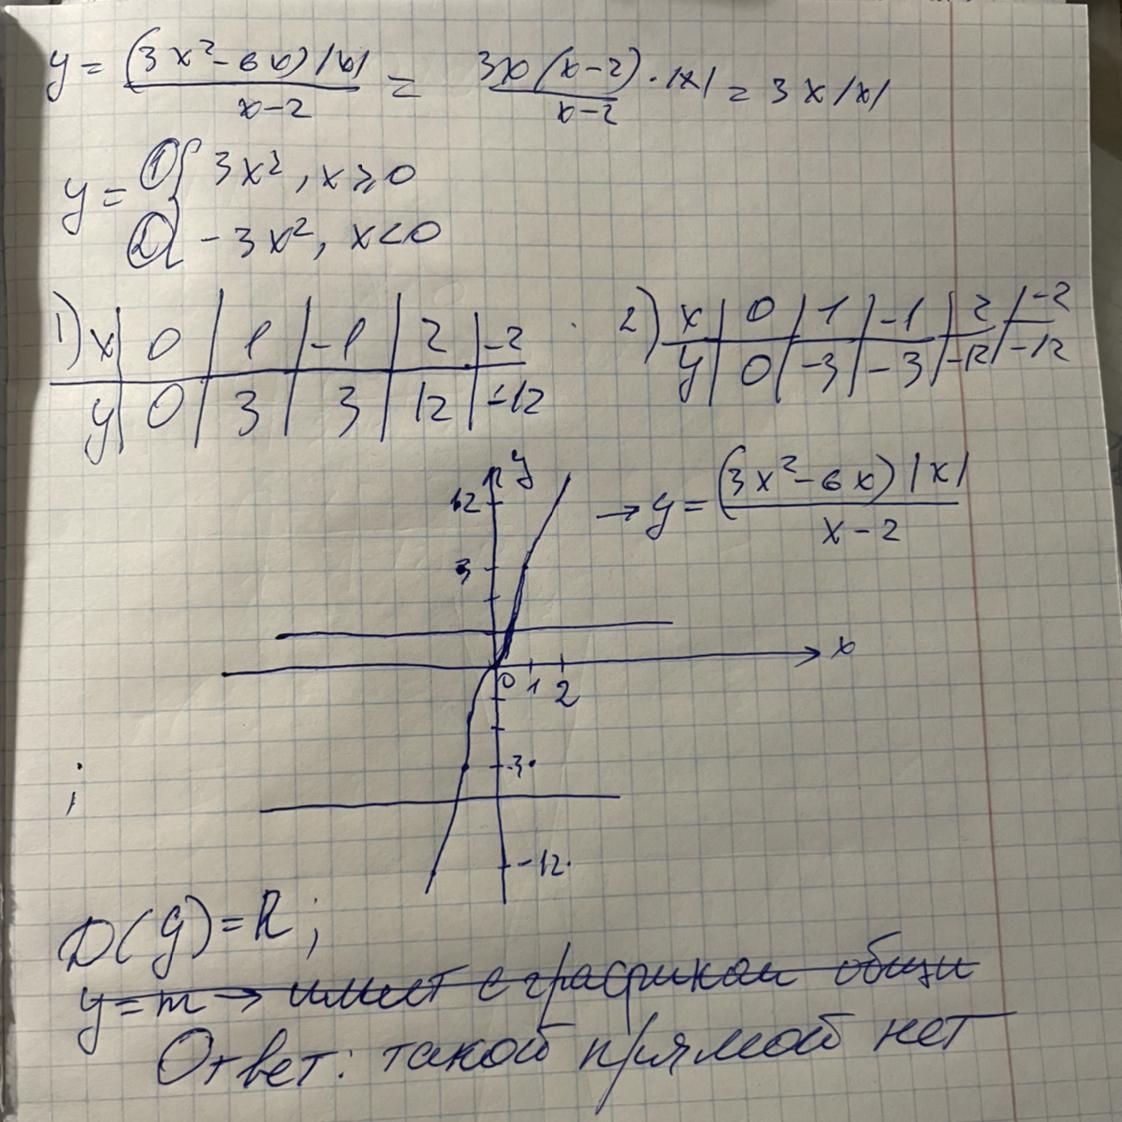 y = (3x²-6x)|x| / x-2 = 3x(x-2)·|x| / x-2 = 3x|x|
y = { 1) 3x², x ≥ 0
2) -3x², x < 0
1) x | 0 | 1 | -1 | 2 | -2
y | 0 | 3 | 3 | 12 | -12
2) x | 0 | 1 | -1 | 2 | -2
y | 0 | -3 | -3 | -12 | -12
y
12
→ y = (3x²-6x)|x| / x-2
3
x
0 1 2
-3
-12
D(y)=R;
y=m → имеет с графиком общи
Ответ: такой прямой нет